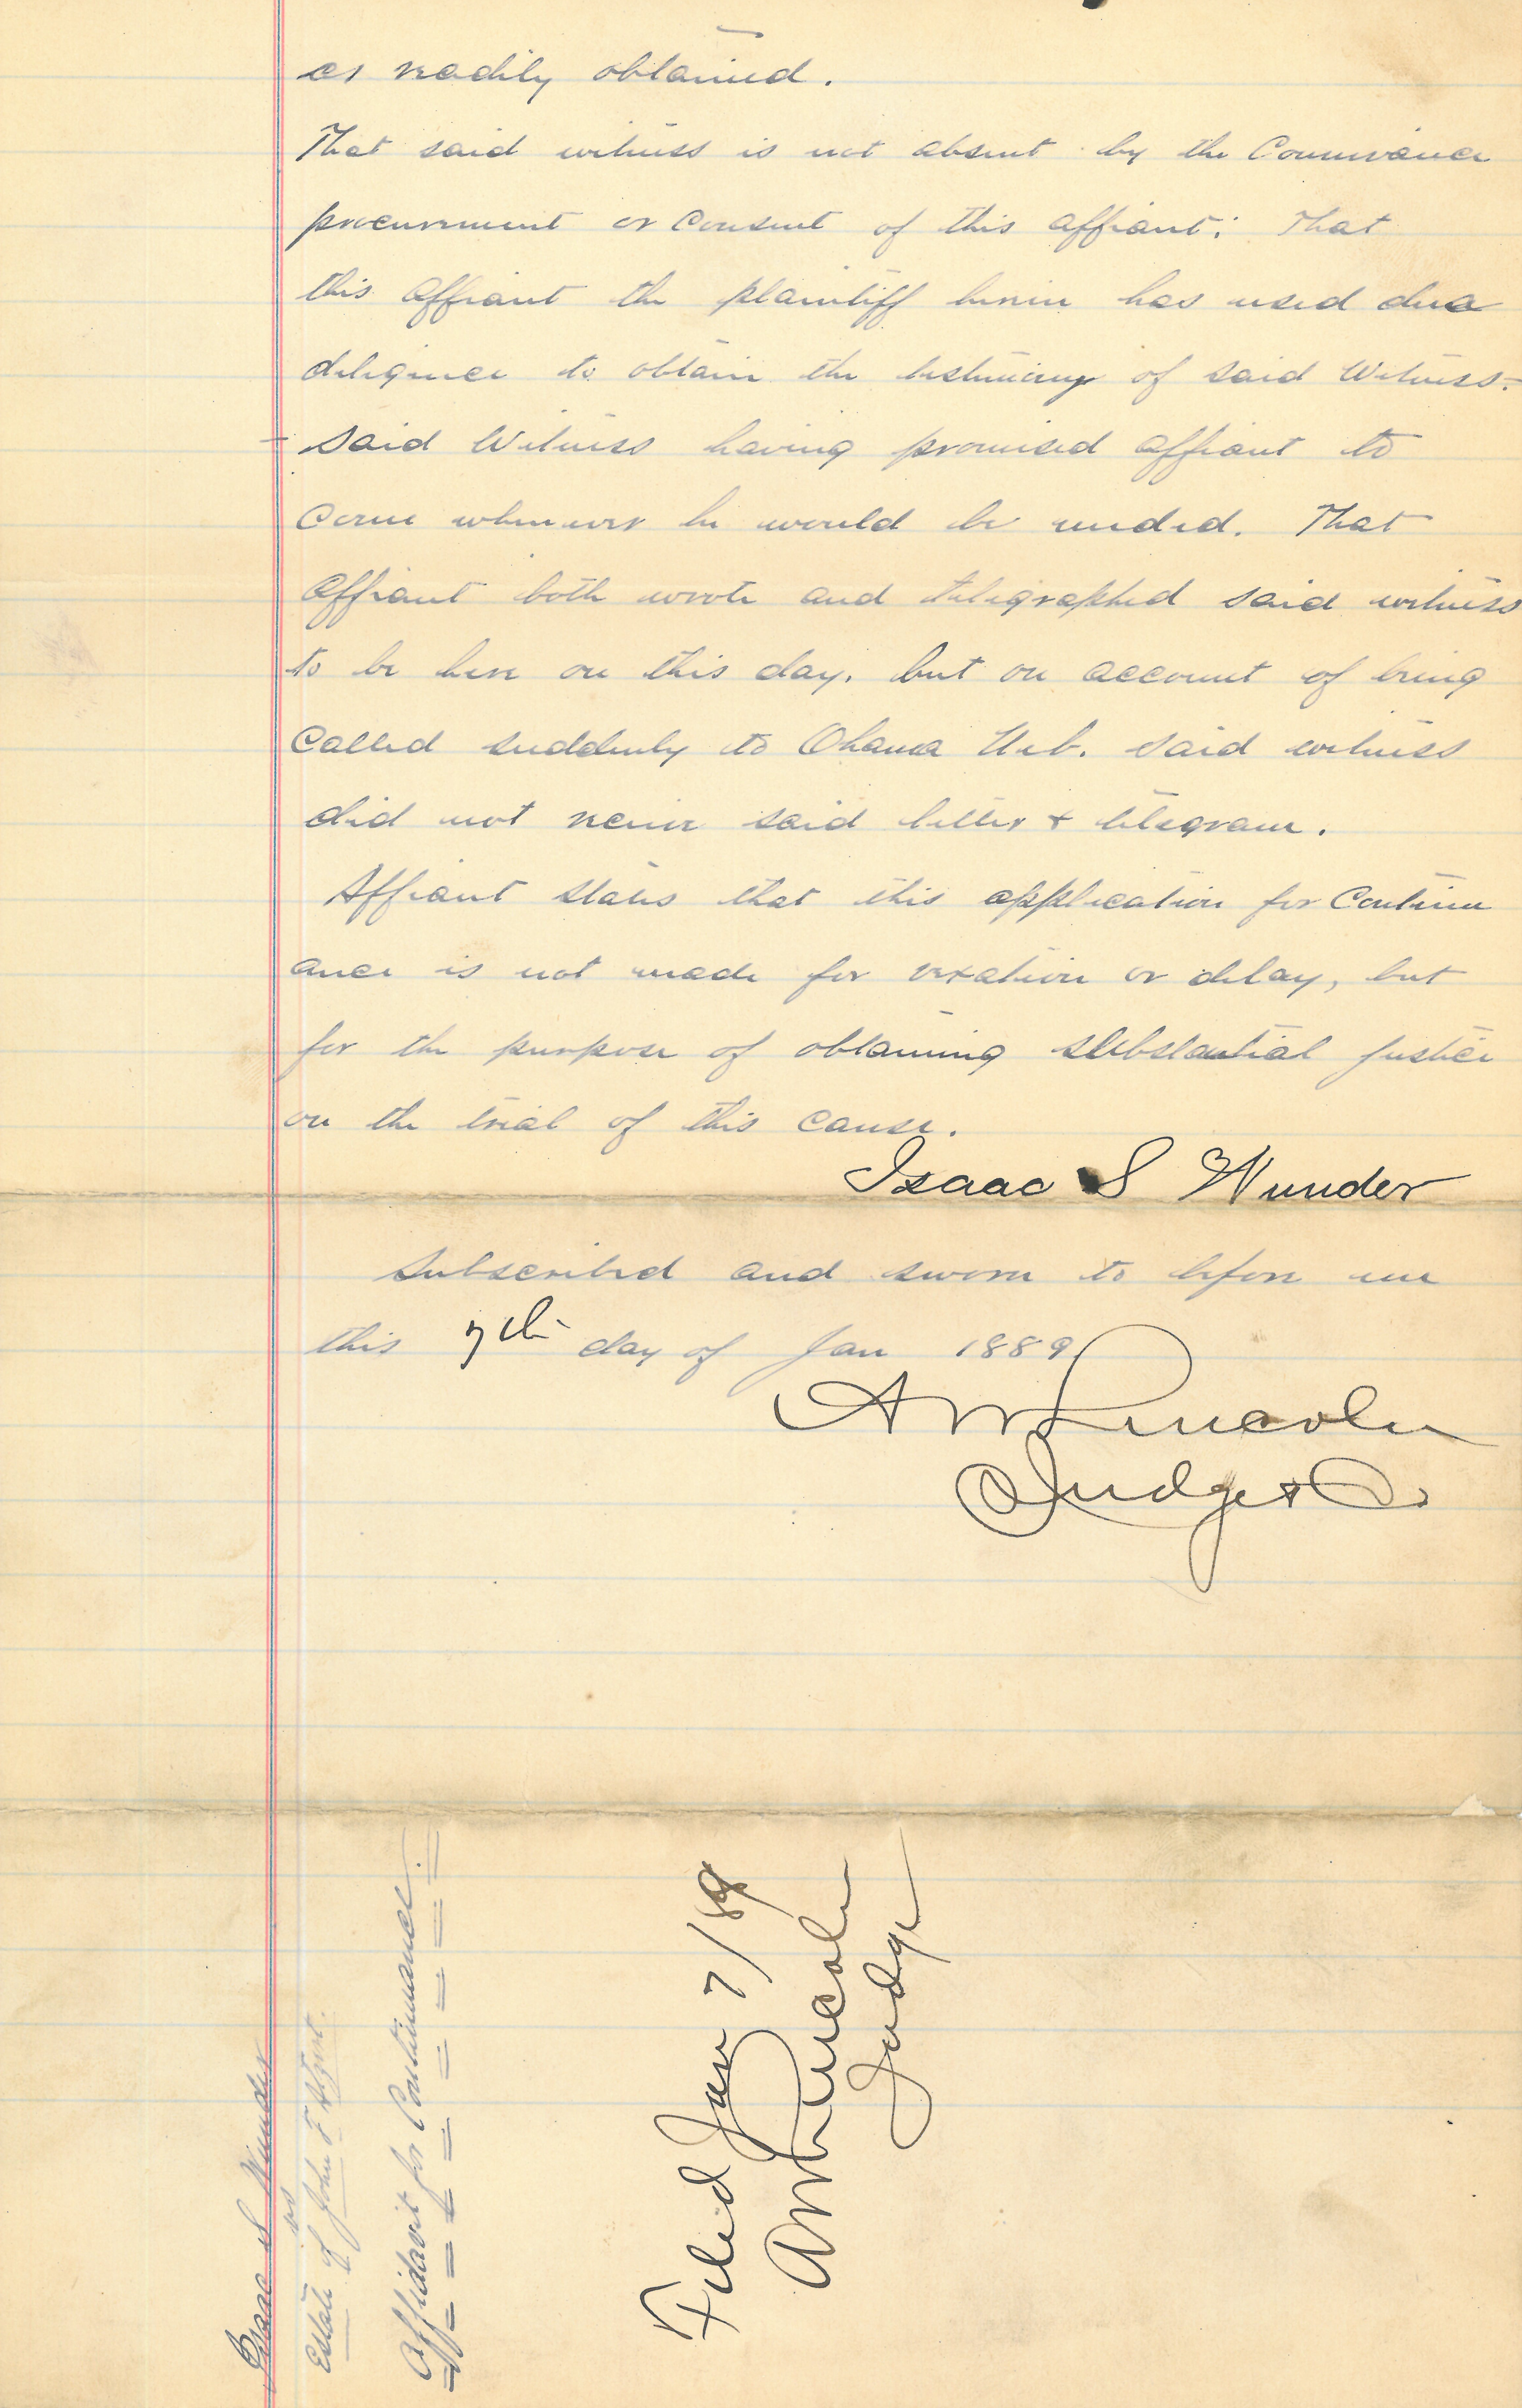 as readily obtained.
That said witness is not absent by the Connivance
procurement or Consent of this affiant; That
this affiant the plaintiff herein has used due
diligence to obtain the testimony of said Witness.
Said Witness having promised affiant to
Come whenever he would be needed. That
affiant both wrote and telegraphed said witness
to be here on this day, but on account of being
Called suddenly to Ohama Neb. said witness
did not receive said letter & telegram.
Affiant states that this application for Continu
ance is not made for vexation or delay, but
for the purpose of obtaining substantial justice
on the trial of this cause.
Isaac S Wunder
Subscribed and sworn to before me
this 7th day of Jan 1889
A W Lincoln
Judge
Isaac S Wunder
vs
Estate of John F
Affidavit for Continuance.
Filed Jan 7/89
A W Lincoln
Judge